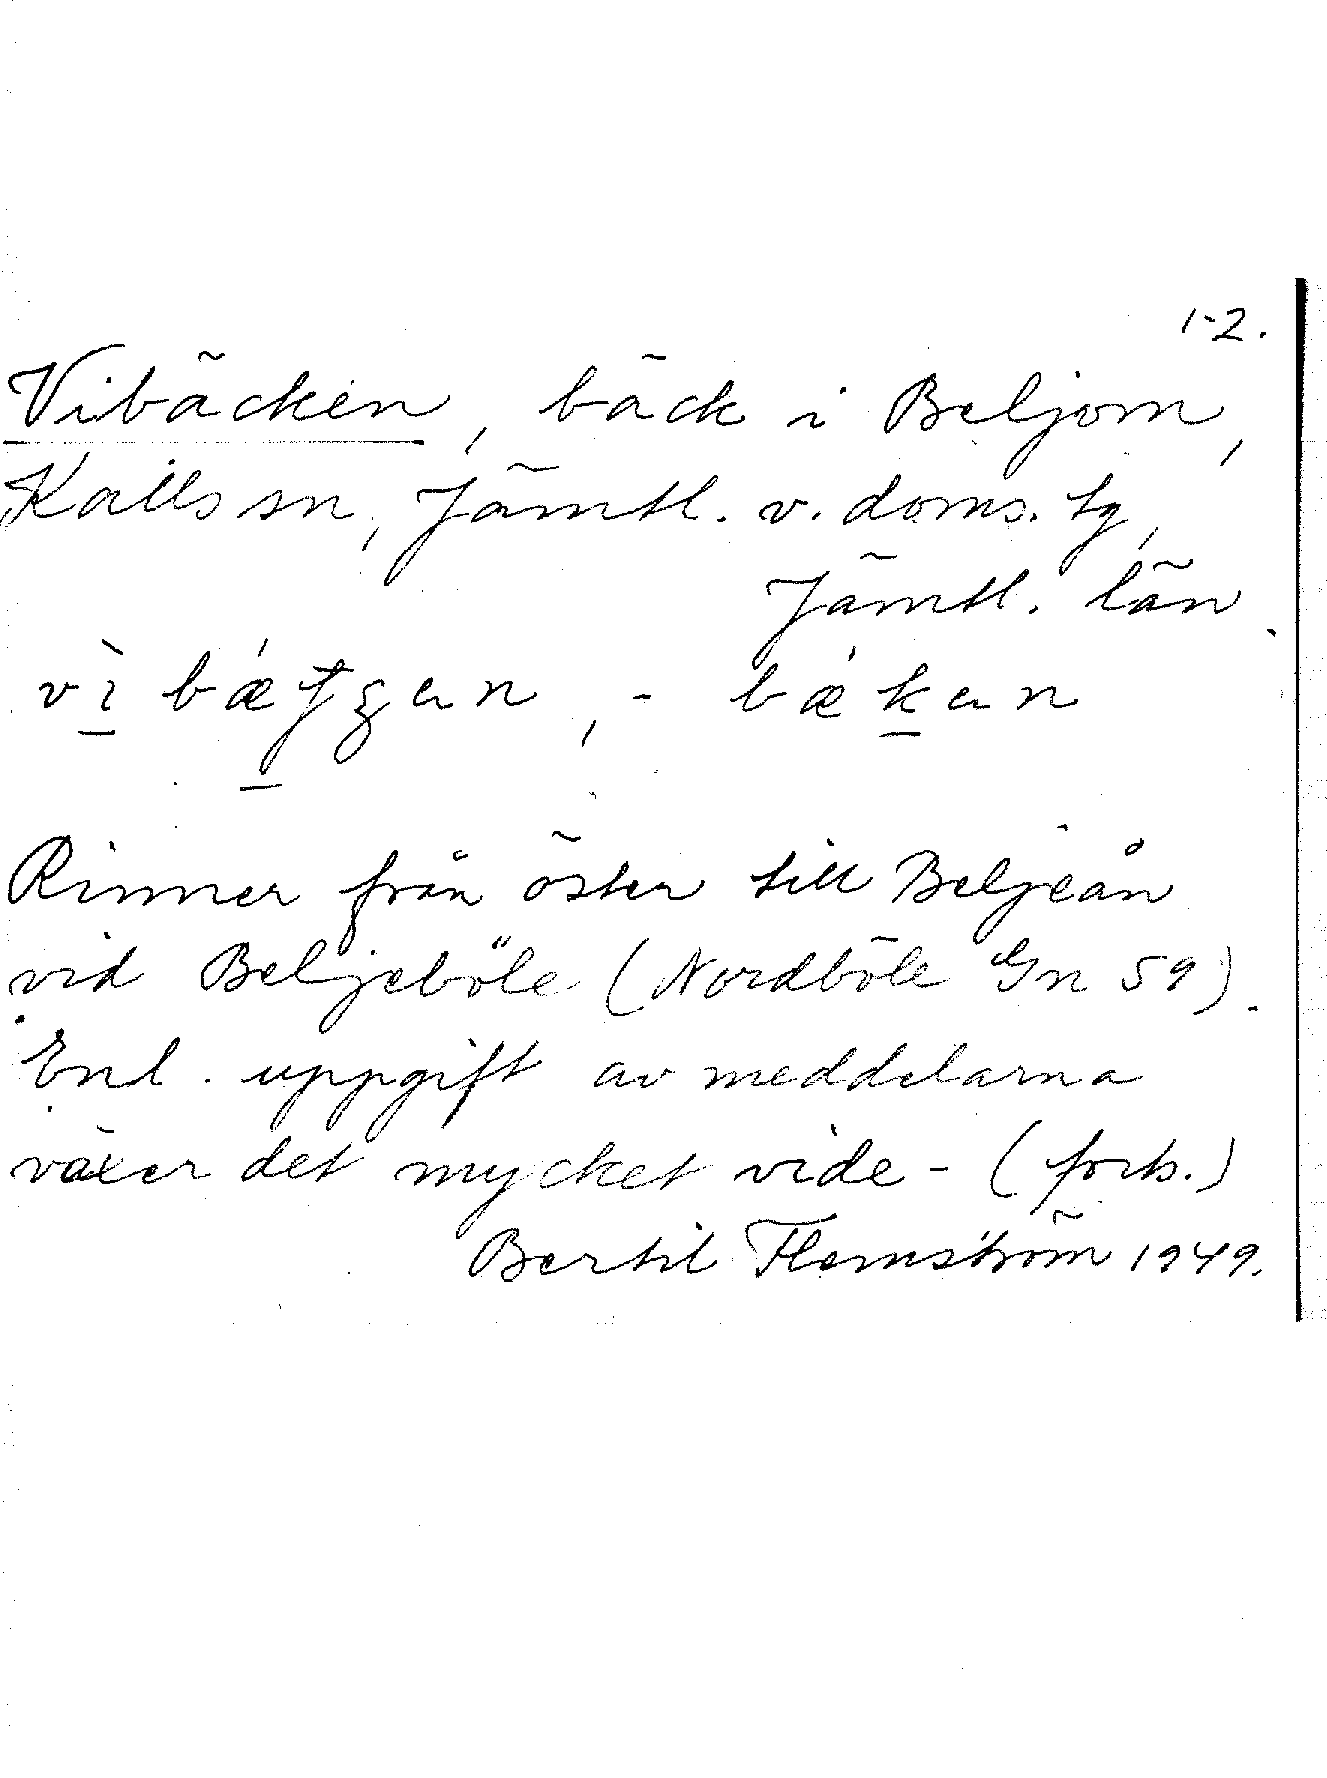 1-2.
Vibäcken, bäck i Beljom,
Kalls sn, Jämtl. v. doms. tg,
Jämtl. län.
vì bǽ , - bǽkan
Rinner från öster till Beljeån
vid Beljeböle (Nordböle Gn 59).
Enl. uppgift av meddelarna
växer det mycket vide - (forts.)
Bertil Flemström 1949.